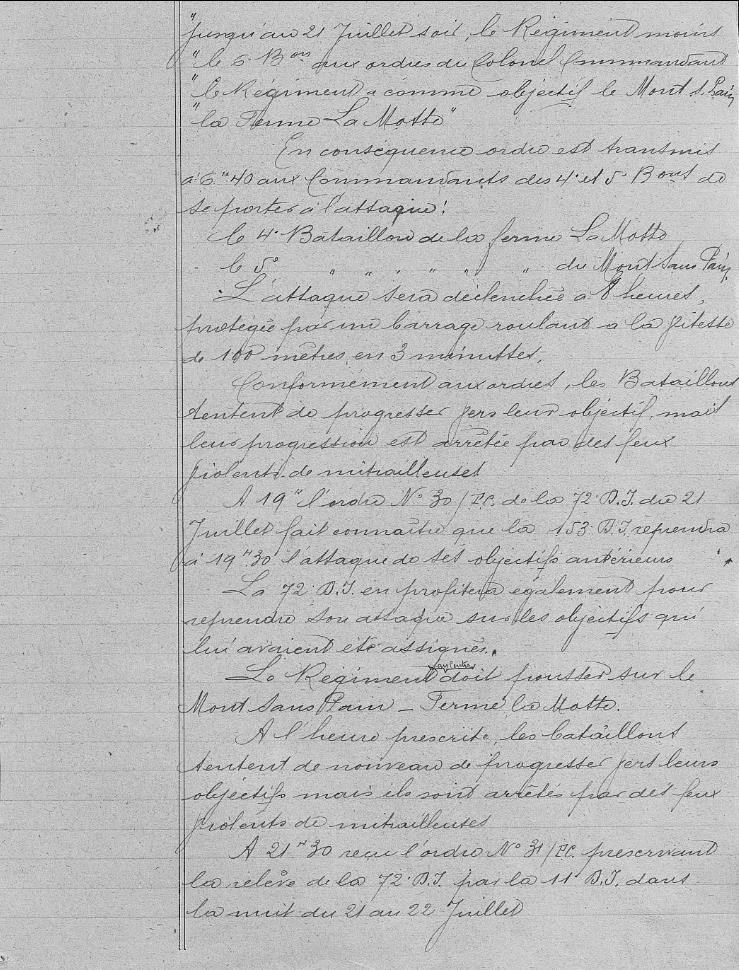 "Jusqu'au 21 Juillet soir, le Régiment moins
"le 6e Bon aux ordres du Colonel Commandant
"le Régiment a comme objectif le Mont s. Pain
"la Ferme La Motte"
En conséquence ordre est transmis
à 6H40 aux Commandants des 4e et 5e Bons de
se porter à l'attaque:
le 4e Bataillon de la ferme La Motte
le 5e " " " " " " du Mont Sans Pain.
L'attaque sera déclenchée à 8 heures,
protégée par un barrage roulant à la vitesse
de 100 mètres en 3 minuttes.
Conformément aux ordres, les Bataillons
tentent de progresser vers leur objectif, mais
leur progression est arrêtée par des feux
violents de mitrailleuses
A 19H l'ordre No 30/P.C. de la 72e D.I. du 21
Juillet fait connaître que la 153e D.I. reprendra
à 19H30 l'attaque de ses objectifs antérieurs
La 72e D.I. en profitera également pour
reprendre son attaque sur les objectifs qui
lui avaient été assignés.
Le Régiment doit pousser sur le
Mont Sans Pain - Ferme la Motte.
A l'heure prescrite, les bataillons
tentent de nouveau de progresser vers leurs
objectifs mais ils sont arrêtés par des feux
violents de mitrailleuses
A 21H30 reçu l'ordre No 31/P.C. prescrivant
la relève de la 72e D.I. par la 11e D.I. dans
la nuit du 21 au 22 Juillet